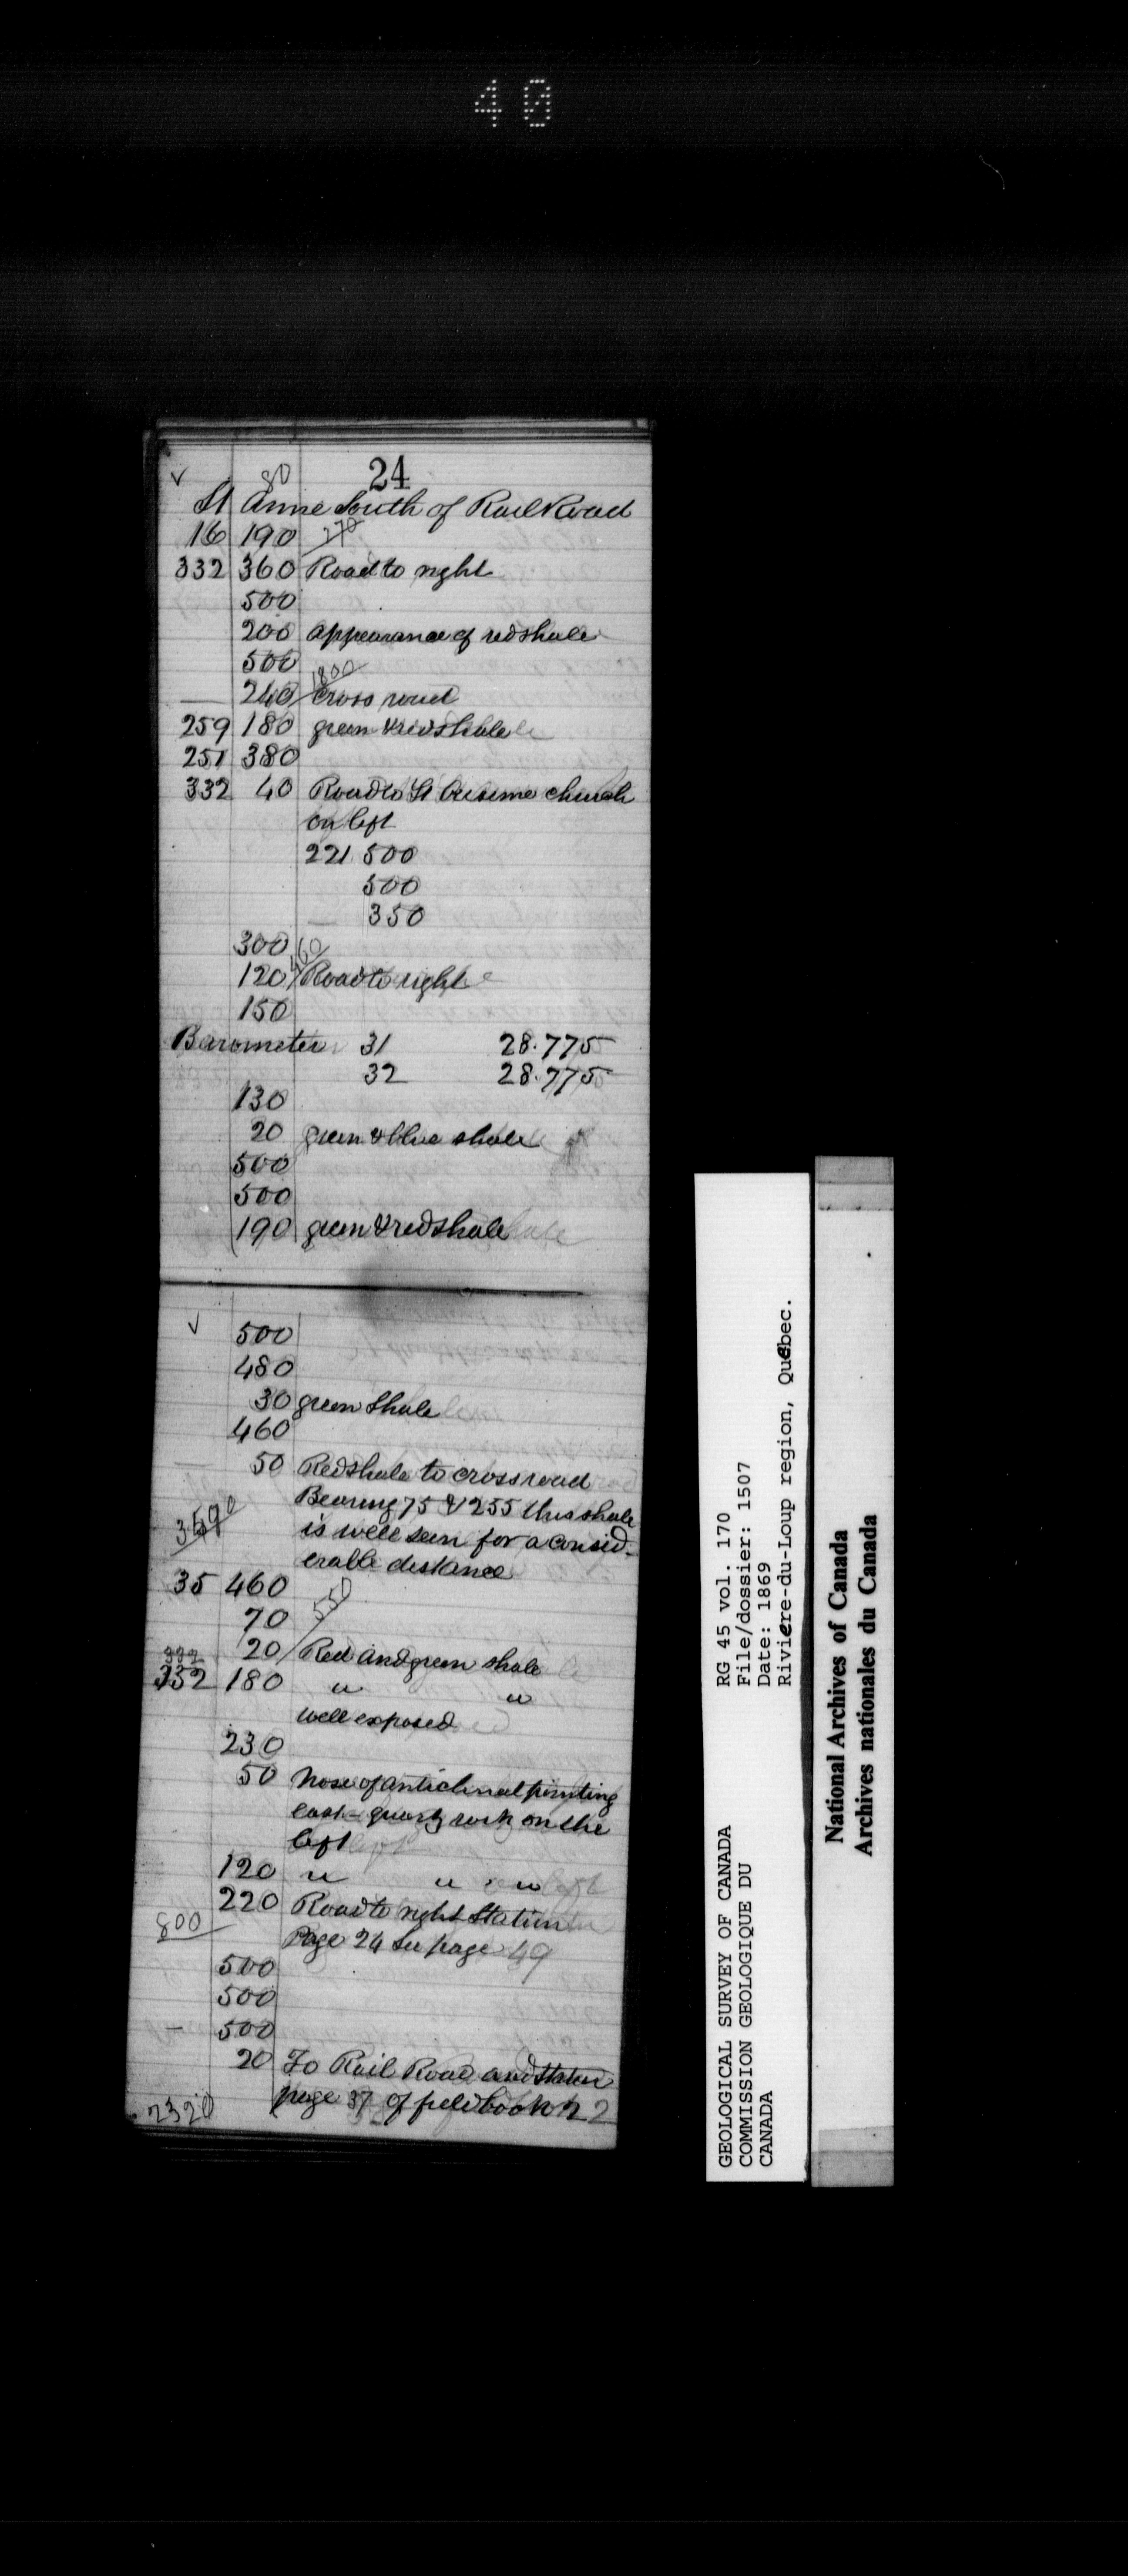 40
24
80
St Anne South of Rail Road
16 190 270
332 360 Road to right
500
200 appearance of red shale
500
1800
240 Cross road
259 180 green & red shale
251 380
332 40 Road to St church
on left
221 500
500
350
300
460
120 Road to right
150
Barometer 31 28.775
32 28.775
130
20 green & blue shale
500
500
190 green & red shale
500
480
30 green Shale
460
50 Red shale to cross road
Bearing 75 & 255 this shale
is well seen for a consid-
erable distance
35 460
70 550
20 Red and green shale
352 180 " "
well exposed
230
50 Nose of anticlinal pointing
east - quartz rock on the
left
120 " " "
220 Road to right Station
800
Page 24 See page 49
500
500
500
20 To Rail Road and Station
page 37 of field book 22
2320
GEOLOGICAL SURVEY OF CANADA
COMMISSION GEOLOGIQUE DU
CANADA
RG 45 vol. 170
File/dossier: 1507
Date: 1869
Riviere-du-Loup region, Quebec.
National Archives of Canada
Archives nationales du Canada